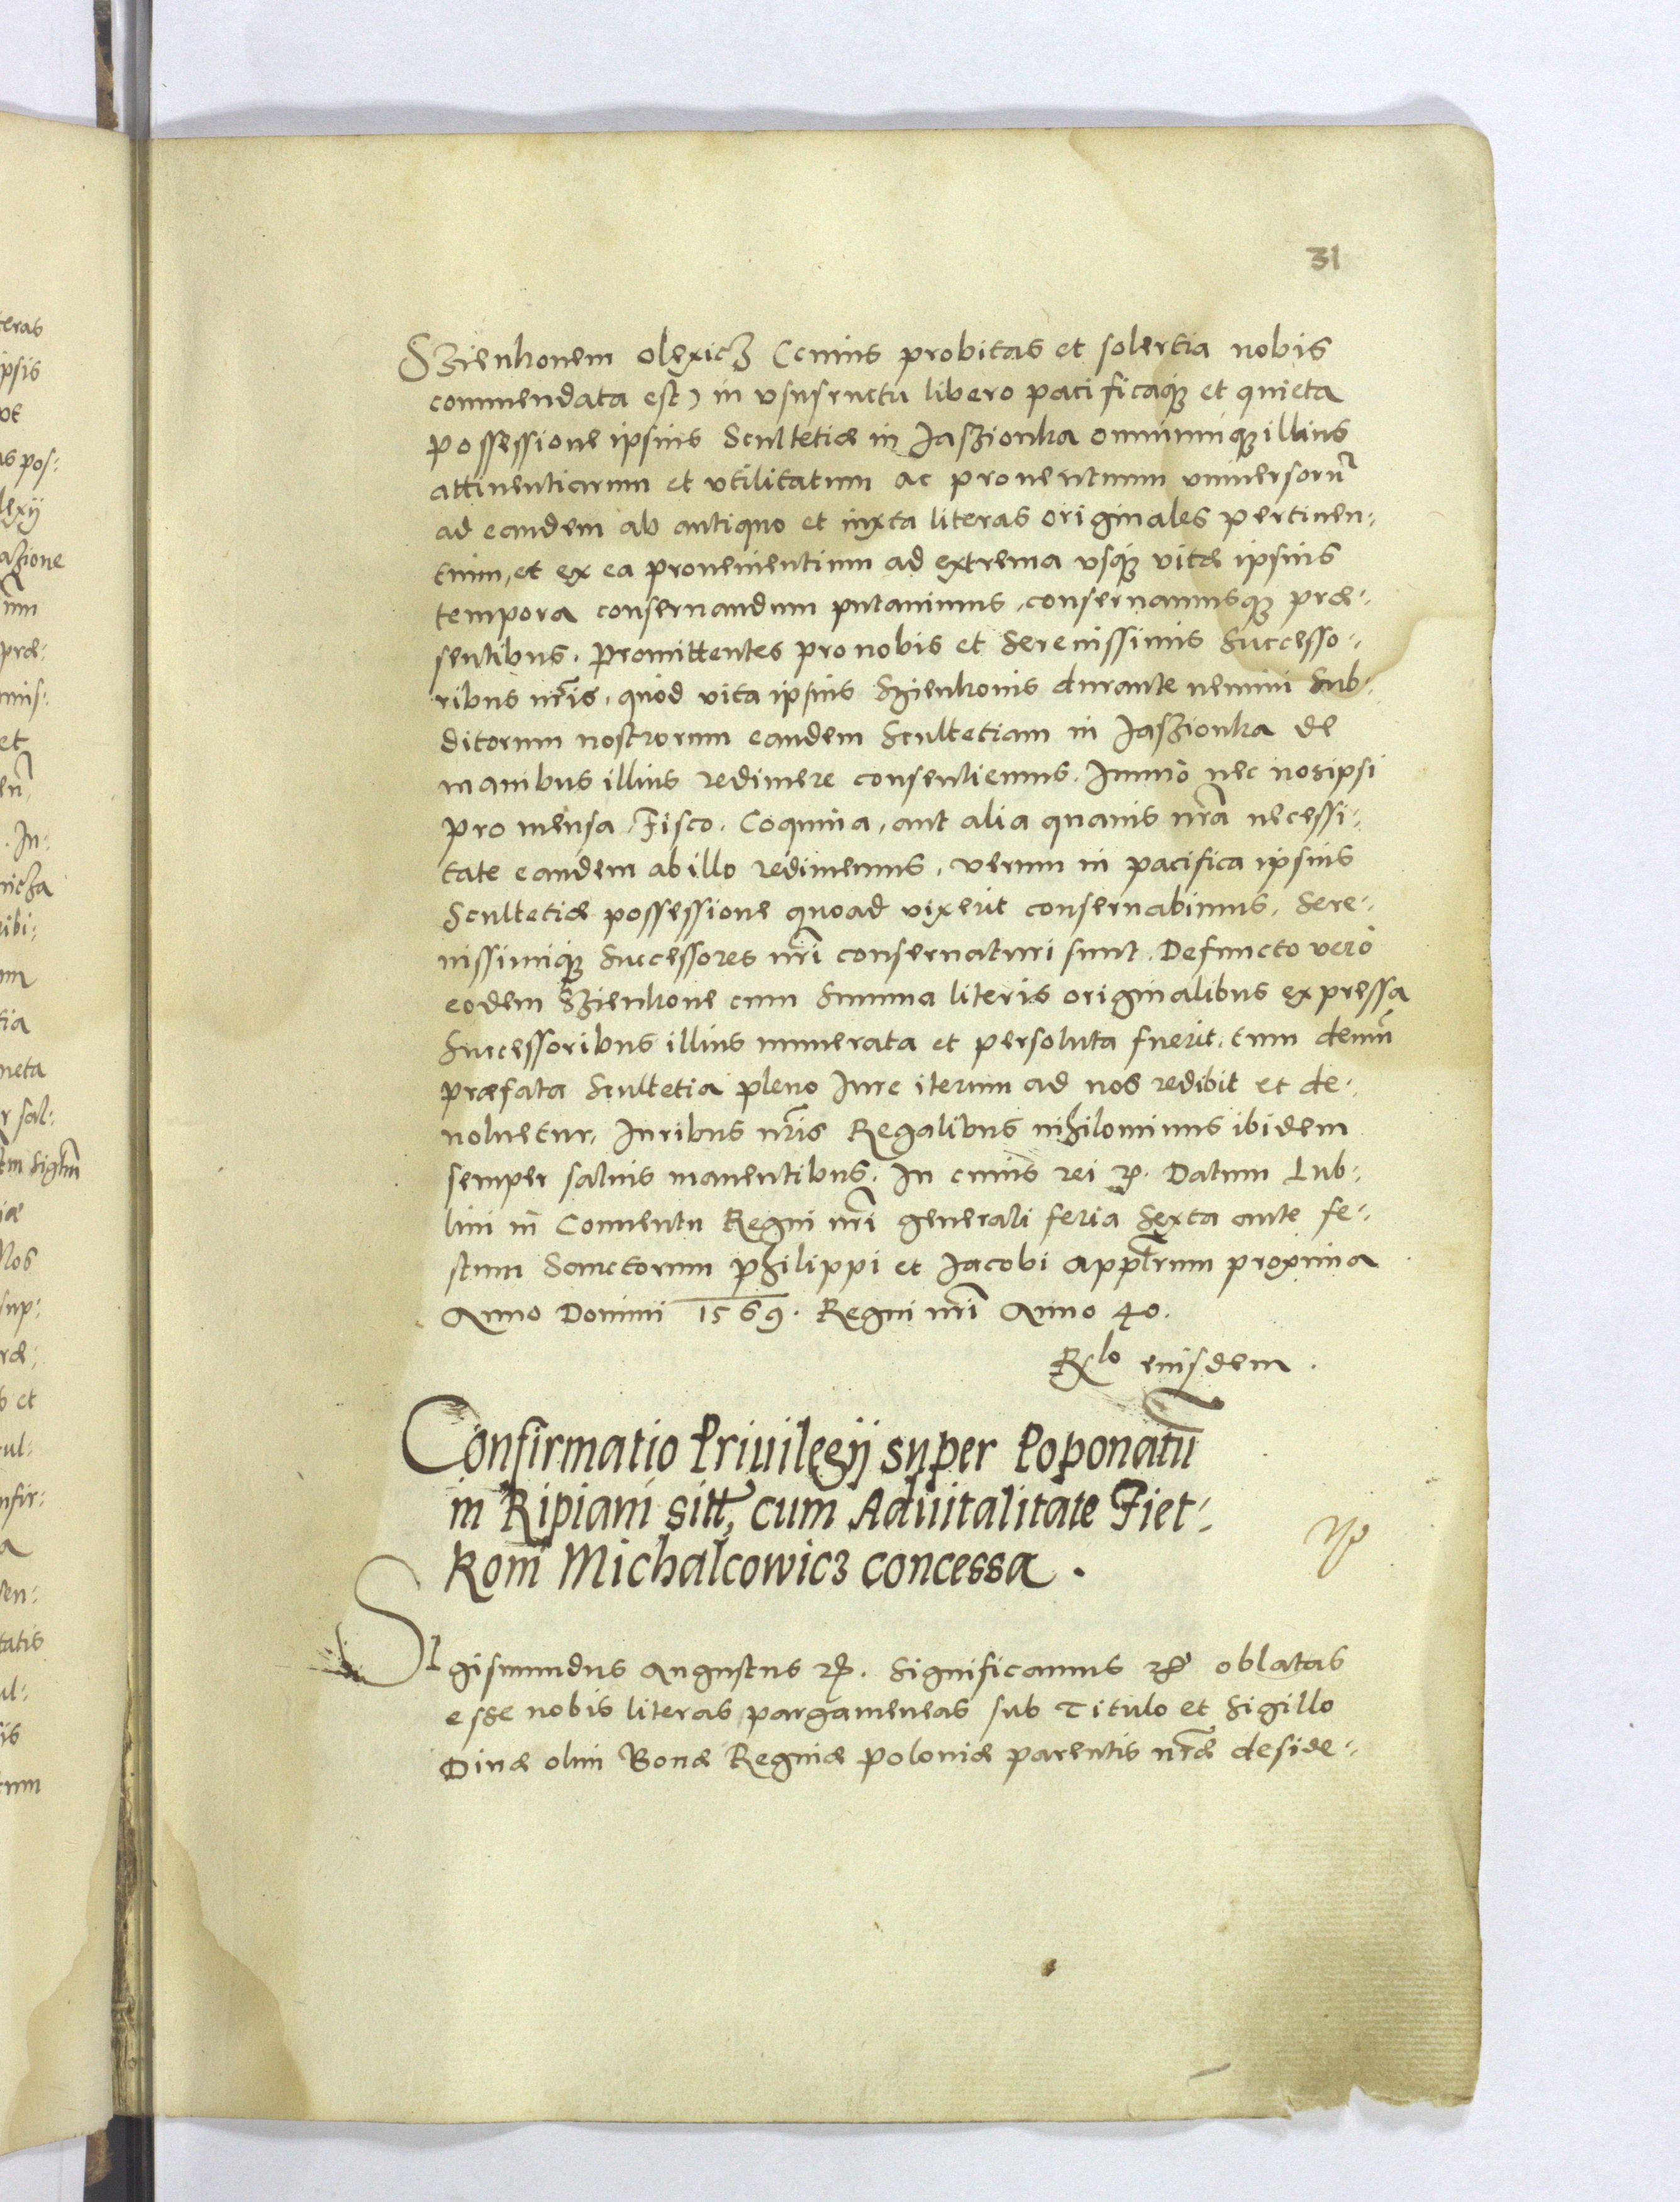 31
Szienkonem Olexicz (cuius probitas et solertia nobis
commendata est) in vsufructu libero pacificaque et quieta
possessione ipsius Scultetiæ in Jaszionka omniumque illius
attinentiarum et vtilitatum ac prouentuum vniuersorũ
ad eandem ab antiquo et iuxta literas originales pertinen-
tium, et ex ea prouenientium ad extrema vsque vitæ ipsius
tempora conseruandum putauimus, conseruamusque præ-
sentibus. Promittentes pro nobis et Serenissimis Successo-
ribus nr̃is, quòd vita ipsius Szienkonis durante nemini Sub-
ditorum nostrorum eandem Scultetiam in Jaszionka de
manibus illius redimere consentiemus. Immò nec nosipsi
pro mensa, Fisco, Coquina, aut alia quauis nr̃a necessi-
tate eandem ab illo redimemus, verum in pacifica ipsius
Scultetiæ possessione quoad vixerit conseruabimus, Sere-
nissimique Successores nr̃i conseruaturi sunt. Defuncto verò
eodem Szienkone cum Summa literis originalibus expressa
Successoribus illius numerata et persoluta fuerit, tum demũ
præfata Scultetia pleno Iure iterum ad nos redibit et de-
uoluetur, Iuribus nr̃is Regalibus nihilominus ibidem
semper saluis manentibus. In cuius rei etc. Datum Lub-
lini in Conuentu Regni nr̃i generali feria Sexta ante fe-
stum Sanctorum Philippi et Jacobi Appl̃rum proxima
Anno Domini 1569. Regni nr̃i Anno 40.
Rlo eiusdem.
Confirmatio Priuilegij super Poponatũ
in Ripiani sitt, cum Aduitalitate Fiet-
koni Michalcowicz concessa.
Sigismundus Augustus etc. Significamus etc. oblatas
esse nobis literas pargameneas sub Titulo et Sigillo
Diuæ olim Bonæ Reginæ Poloniæ parentis nr̃æ deside-